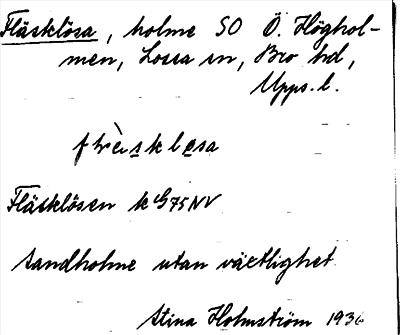 Fläsklösa, holme SO Ö. Höghol-
men, Lossa sn, Bro hd,
Upps. l.
Fläsklösen k G75NV
Sandholme utan växtlighet
Stina Holmström 1936